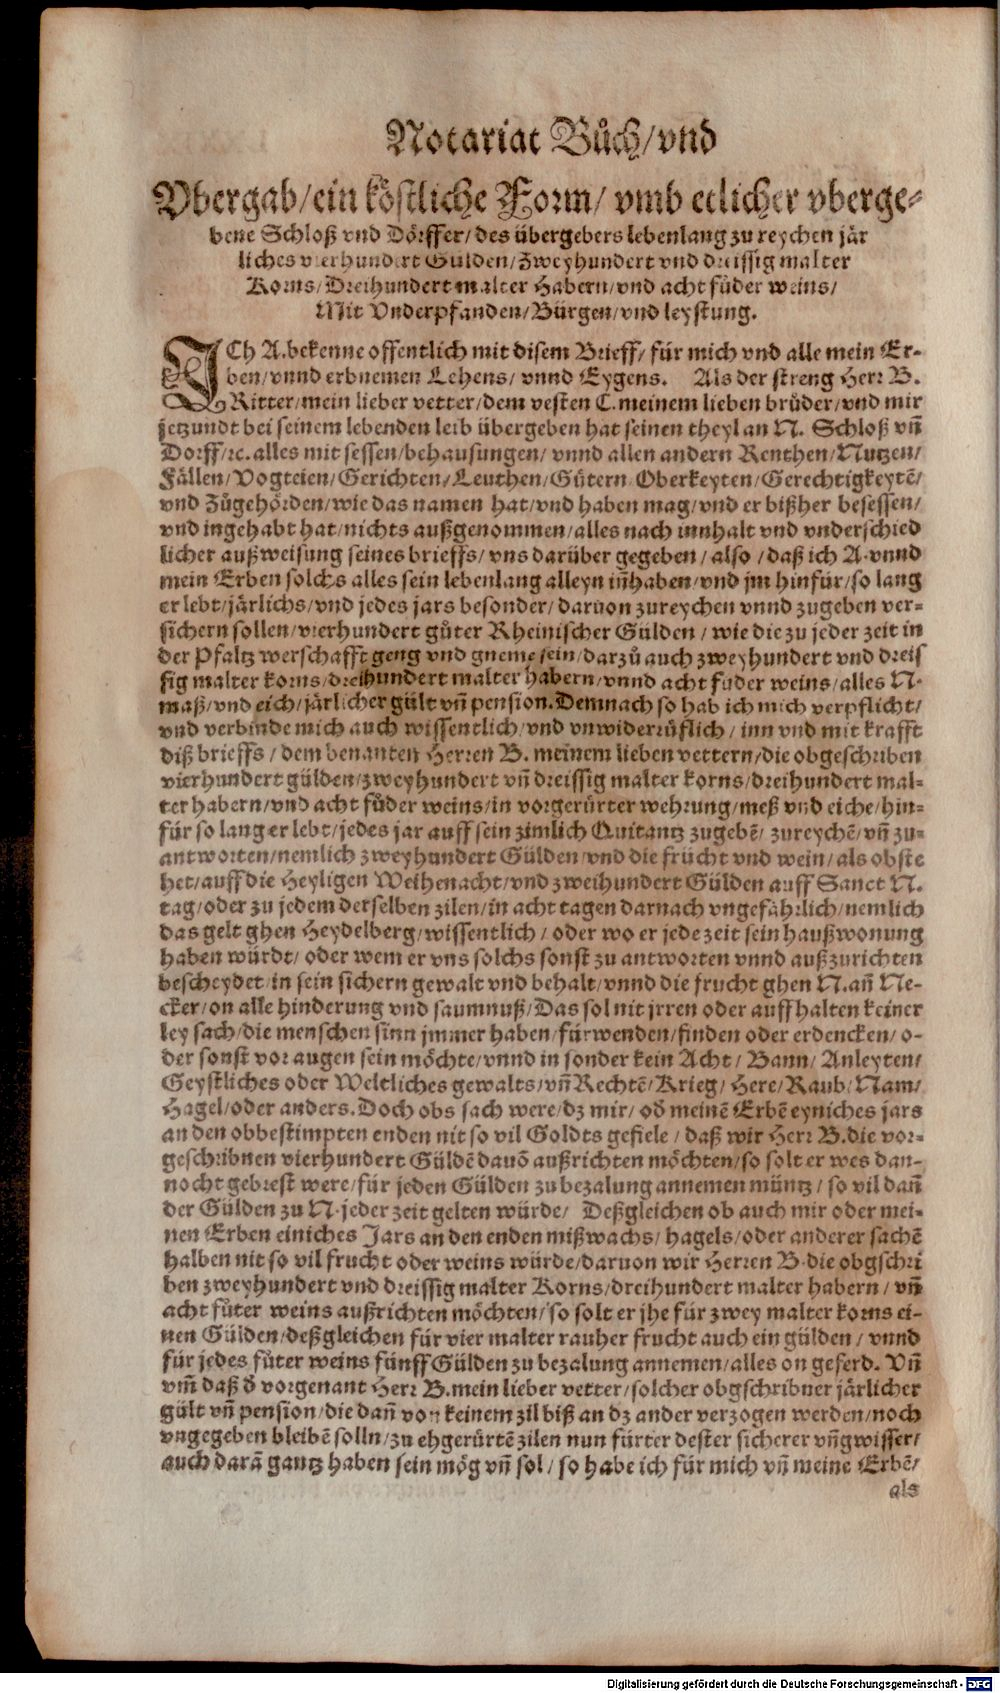 Notariat Bůch/vnd
Vbergab/ein köstliche Form/ vmb etlicher vberge-
bene Schloß vnd Dörffer/des übergebers lebenlang zu reychen jär
liches vierhundert Gülden/Zweyhundert vnd dreissig malter
Korns/Dreihundert malter Habern/vnd acht fůder weins/
Mit Vnderpfanden/Bürgen/vnd leystung.
ICh A.bekenne offentlich mit disem Brieff/für mich vnd alle mein Er-
ben/vnnd erbnemen Lehens/ vnnd Eygens. Als der streng Herr B.
Ritter/mein lieber vetter/dem vesten C.meinem lieben brůder/vnd mir
jetzundt bei seinem lebenden leib übergeben hat seinen theyl an N. Schloß vñ
Dorff/ꝛc.alles mit sessen/behausungen/ vnnd allen andern Renthen/Nutzen/
Fällen/Vogteien/Gerichten/Leuthen/Gütern Oberkeyten/Gerechtigkeytẽ/
vnd Zůgehörden/wie das namen hat/vnd haben mag/vnd er bißher besessen/
vnd ingehabt hat/nichts außgenommen/alles nach innhalt vnd vnderschied
licher außweisung seines brieffs/vns darüber gegeben/also/daß ich A.vnnd
mein Erben solchs alles sein lebenlang alleyn iñhaben/vnd jm hinfür/so lang
er lebt/järlichs/vnd jedes jars besonder/daruon zureychen vnnd zugeben ver-
sichern sollen/vierhundert gůter Rheinischer Gülden/wie die zu jeder zeit in
der Pfaltz werschafft geng vnd gneme sein/darzů auch zweyhundert vnd dreis
sig malter korns/dreihundert malter habern/vnnd acht fůder weins/alles N.
maß/vnd eich/järlicher gült vñ pension.Demnach so hab ich mich verpflicht/
vnd verbinde mich auch wissentlich/vnd vnwiderrůflich/inn vnd mit krafft
diß brieffs/dem benanten Herren B.meinem lieben vettern/die obgeschriben
vierhundert gülden/zweyhundert vñ dreissig malter korns/dreihundert mal-
ter habern/vnd acht fůder weins/in vorgerürter wehrung/meß vnd eiche/hin-
für so lang er lebt/jedes jar auff sein zimlich Quitantz zugebẽ/zureychẽ/vñ zu-
antworten/nemlich zweyhundert Gülden vnd die frücht vnd wein/als obste
het/auff die Heyligen Weihenacht/vnd zweihundert Gülden auff Sanct N.
tag/oder zu jedem derselben zilen/in acht tagen darnach vngefährlich/nemlich
das gelt ghen Heydelberg/wissentlich/oder wo er jede zeit sein haußwonung
haben würdt/oder wem er vns solchs sonst zu antworten vnnd außzurichten
bescheydet/in sein sichern gewalt vnd behalt/vnnd die frucht ghen N.añ Ne-
cker/on alle hinderung vnd saumnuß/Das sol nit jrren oder auffhalten keiner
ley sach/die menschen sinn jmmer haben/fürwenden/finden oder erdencken/o-
der sonst vor augen sein möchte/vnnd in sonder kein Acht/Bann/Anleyten/
Geystliches oder Weltliches gewalts/vñ Rechtẽ/Krieg/Here/Raub/Nam/
Hagel/oder anders.Doch obs sach were/dz mir/od̃ meinẽ Erbẽ eyniches jars
an den obbestimpten enden nit so vil Goldts gefiele/daß wir Herr B.die vor-
geschribnen vierhundert Güldẽ dauõ außrichten möchten/so solt er wes dan-
nocht gebrest were/für jeden Gülden zu bezalung annemen müntz/so vil dañ
der Gülden zu N.jeder zeit gelten würde/ Deßgleichen ob auch mir oder mei-
nen Erben einiches Jars an den enden mißwachs/hagels/oder anderer sachẽ
halben nit so vil frucht oder weins würde/daruon wir Herren B.die obgschri
ben zweyhundert vnd dreissig malter Korns/dreihundert malter habern/vñ
acht fůter weins außrichten möchten/so solt er jhe für zwey malter korns ei-
nen Gülden/deßgleichen für vier malter rauher frucht auch ein gülden/vnnd
für jedes fůter weins fünff Gülden zu bezalung annemen/alles on geferd. Vñ
vm̃ daß d̃ vorgenant Herr B.mein lieber vetter/solcher obgschribner järlicher
gült vñ pension/die dañ von keinem zil biß an dz ander verzogen werden/noch
vngegeben bleibẽ solln/zu ehgerürtẽ zilen nun fürter dester sicherer vñ gwisser/
auch darã gantz haben sein mög vñ sol/so habe ich für mich vñ meine Erbẽ/
als
Digitalisierung gefördert durch die Deutsche Forschungsgemeinschaft - DFG